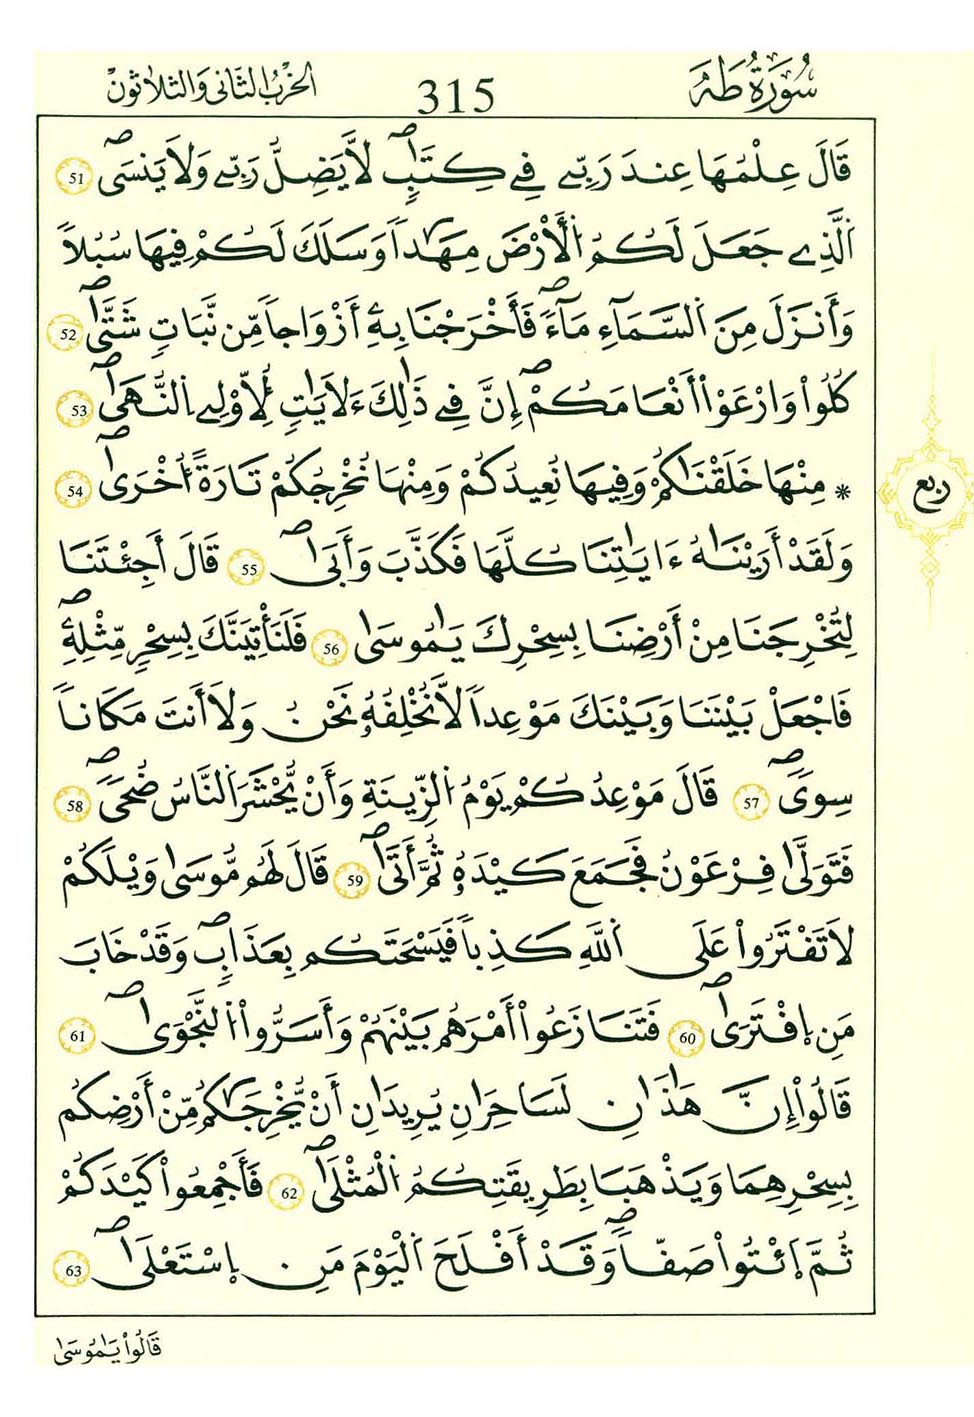 سُورَةُ طَهَ 315 الحِزْبُ الثَّانِي وَالثَّلاثُونَ
قَالَ عِلْمُهَا عِندَ رَبِّے فِے كِتَٰبٖۖ لَّا يَضِلُّ رَبِّے وَلَا يَنسَيۖ 51
اَ۬لذِے جَعَلَ لَكُمُ اُ۬لْأَرْضَ مِهَٰداٗ وَسَلَكَ لَكُمْ فِيهَا سُبُلاٗ
وَأَنزَلَ مِنَ اَ۬لسَّمَآءِ مَآءٗۖ فَأَخْرَجْنَا بِهِۦٓ أَزْوَٰجاٗ مِّن نَّبَاتٖ شَتَّىٰۖ 52
كُلُواْ وَارْعَوْاْ اَنْعَٰمَكُمْۖ إِنَّ فِے ذَٰلِكَ ءَلَايَٰتٖ لِّأُوْلِے اِ۬لنُّهَىٰۖ 53
* مِنْهَا خَلَقْنَٰكُمْ وَفِيهَا نُعِيدُكُمْ وَمِنْهَا نُخْرِجُكُمْ تَارَةً أُخْرَىٰۖ 54
وَلَقَدْ أَرَيْنَٰهُ ءَايَٰتِنَا كُلَّهَا فَكَذَّبَ وَأَبَىٰۖ 55 قَالَ أَجِئْتَنَا
لِتُخْرِجَنَا مِنْ أَرْضِنَا بِسِحْرِكَ يَٰمُوسَىٰ 56 فَلَنَأْتِيَنَّكَ بِسِحْرٖ مِّثْلِهِۦۖ
فَاجْعَلْ بَيْنَنَا وَبَيْنَكَ مَوْعِداٗ لَّا نُخْلِفُهُۥ نَحْنُ وَلَا أَنتَ مَكَاناٗ
سِوىٗۖ 57 قَالَ مَوْعِدُكُمْ يَوْمُ اُ۬لزِّينَةِ وَأَنْ يُّحْشَرَ اَ۬لنَّاسُ ضُحىٗۖ 58
فَتَوَلَّىٰ فِرْعَوْنُ فَجَمَعَ كَيْدَهُۥ ثُمَّ أَتَىٰۖ 59 قَالَ لَهُم مُّوسَىٰ وَيْلَكُمْ
لَا تَفْتَرُواْ عَلَى اَ۬للَّهِ كَذِباٗ فَيَسْحَتَكُم بِعَذَابٖۖ وَقَدْ خَابَ
مَنِ اِ۪فْتَرَىٰۖ 60 فَتَنَٰزَعُواْ أَمْرَهُم بَيْنَهُمْ وَأَسَرُّواْ اُ۬لنَّجْوَىٰۖ 61
قَالُواْ إِنَّ هَٰذَٰنِ لَسَٰحِرَٰنِ يُرِيدَٰنِ أَنْ يُّخْرِجَٰكُم مِّنْ أَرْضِكُم
بِسِحْرِهِمَا وَيَذْهَبَا بِطَرِيقَتِكُمُ اُ۬لْمُثْلَىٰۖ 62 فَأَجْمِعُواْ كَيْدَكُمْ
ثُمَّ اَ۪ئْتُواْ صَفّاٗۖ وَقَدْ أَفْلَحَ اَ۬لْيَوْمَ مَنِ اِ۪سْتَعْلَىٰۖ 63
ربع
قَالُواْ يَٰمُوسَىٰ